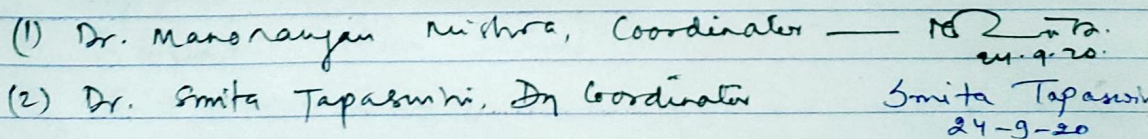 (1) Dr. Manoranjan Mishra, Coordinator —
24.9.20.
(2) Dr. Smita Tapaswini, Dy Coordinator Smita Tapaswin
24-9-20